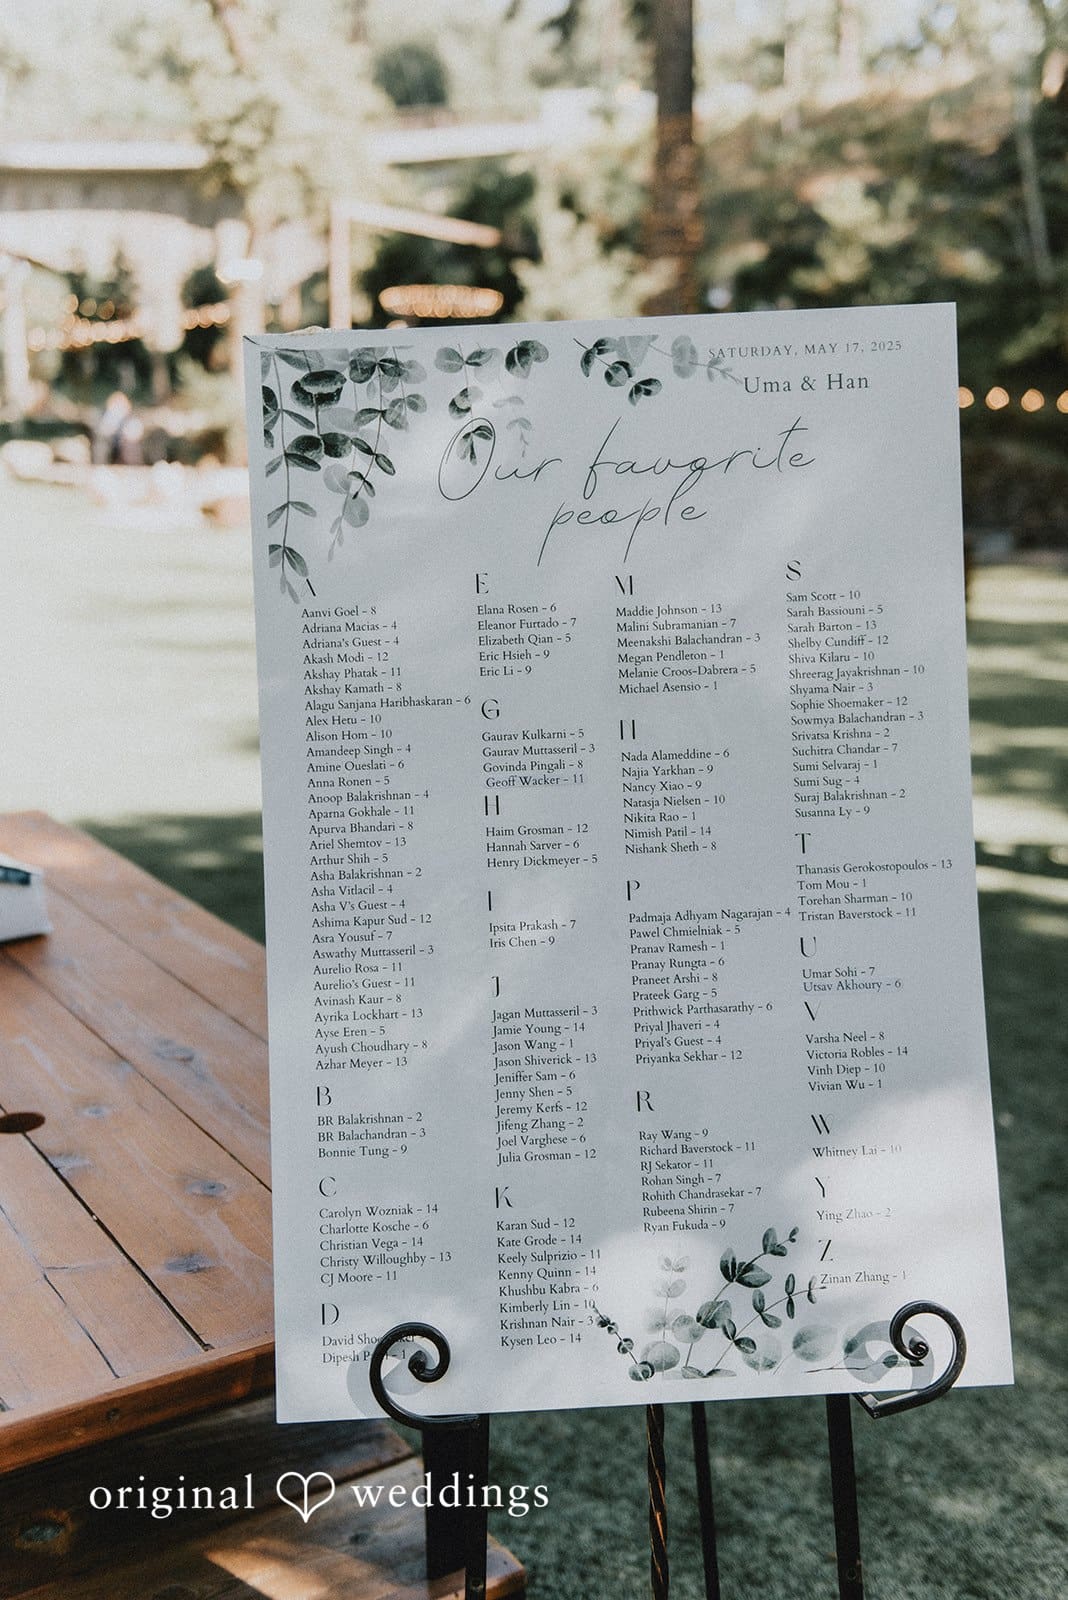 SATURDAY, MAY 17, 2025
Uma & Han
Our favorite
people
A
Aanvi Goel - 8
Adriana Macias - 4
Adriana's Guest - 4
Akash Modi - 12
Akshay Phatak - 11
Akshay Kamath - 8
Alagu Sanjana Haribhaskaran - 6
Alex Hetu - 10
Alison Hom - 10
Amandeep Singh - 4
Amine Oueslati - 6
Anna Ronen - 5
Anoop Balakrishnan - 4
Aparna Gokhale - 11
Apurva Bhandari - 8
Ariel Shemtov - 13
Arthur Shih - 5
Asha Balakrishnan - 2
Asha Vitlacil - 4
Asha V's Guest - 4
Ashima Kapur Sud - 12
Asra Yousuf - 7
Aswathy Muttasseril - 3
Aurelio Rosa - 11
Aurelio's Guest - 11
Avinash Kaur - 8
Ayrika Lockhart - 13
Ayse Eren - 5
Ayush Choudhary - 8
Azhar Meyer - 13
B
BR Balakrishnan - 2
BR Balachandran - 3
Bonnie Tung - 9
C
Carolyn Wozniak - 14
Charlotte Kosche - 6
Christian Vega - 14
Christy Willoughby - 13
CJ Moore - 11
D
David
Dipesh
E
Elana Rosen - 6
Eleanor Furtado - 7
Elizabeth Qian - 5
Eric Hsieh - 9
Eric Li - 9
G
Gaurav Kulkarni - 5
Gaurav Muttasseril - 3
Govinda Pingali - 8
Geoff Wacker - 11
H
Haim Grosman - 12
Hannah Sarver - 6
Henry Dickmeyer - 5
I
Ipsita Prakash - 7
Iris Chen - 9
J
Jagan Muttasseril - 3
Jamie Young - 14
Jason Wang - 1
Jason Shiverick - 13
Jeniffer Sam - 6
Jenny Shen - 5
Jeremy Kerfs - 12
Jifeng Zhang - 2
Joel Varghese - 6
Julia Grosman - 12
K
Karan Sud - 12
Kate Grode - 14
Keely Sulprizio - 11
Kenny Quinn - 14
Khushbu Kabra - 6
Kimberly Lin - 10
Krishnan Nair - 3
Kysen Leo - 14
M
Maddie Johnson - 13
Malini Subramanian - 7
Meenakshi Balachandran - 3
Megan Pendleton - 1
Melanie Croos-Dabrera - 5
Michael Asensio - 1
N
Nada Alameddine - 6
Najia Yarkhan - 9
Nancy Xiao - 9
Natasja Nielsen - 10
Nikita Rao - 1
Nimish Patil - 14
Nishank Sheth - 8
P
Padmaja Adhyam Nagarajan - 4
Pawel Chmielniak - 5
Pranav Ramesh - 1
Pranay Rungta - 6
Praneet Arshi - 8
Prateek Garg - 5
Prithwick Parthasarathy - 6
Priyal Jhaveri - 4
Priyal's Guest - 4
Priyanka Sekhar - 12
R
Ray Wang - 9
Richard Baverstock - 11
RJ Sekator - 11
Rohan Singh - 7
Rohith Chandrasekar - 7
Rubeena Shirin - 7
Ryan Fukuda - 9
S
Sam Scott - 10
Sarah Bassiouni - 5
Sarah Barton - 13
Shelby Cundiff - 12
Shiva Kilaru - 10
Shreerag Jayakrishnan - 10
Shyama Nair - 3
Sophie Shoemaker - 12
Sowmya Balachandran - 3
Srivatsa Krishna - 2
Suchitra Chandar - 7
Sumi Selvaraj - 1
Sumi Sug - 4
Suraj Balakrishnan - 2
Susanna Ly - 9
T
Thanasis Gerokostopoulos - 13
Tom Mou - 1
Torehan Sharman - 10
Tristan Baverstock - 11
U
Umar Sohi - 7
Utsav Akhoury - 6
V
Varsha Neel - 8
Victoria Robles - 14
Vinh Diep - 10
Vivian Wu - 1
W
Whitney Lai - 10
Y
Ying Zhao - 2
Z
Zinan Zhang - 1
original weddings